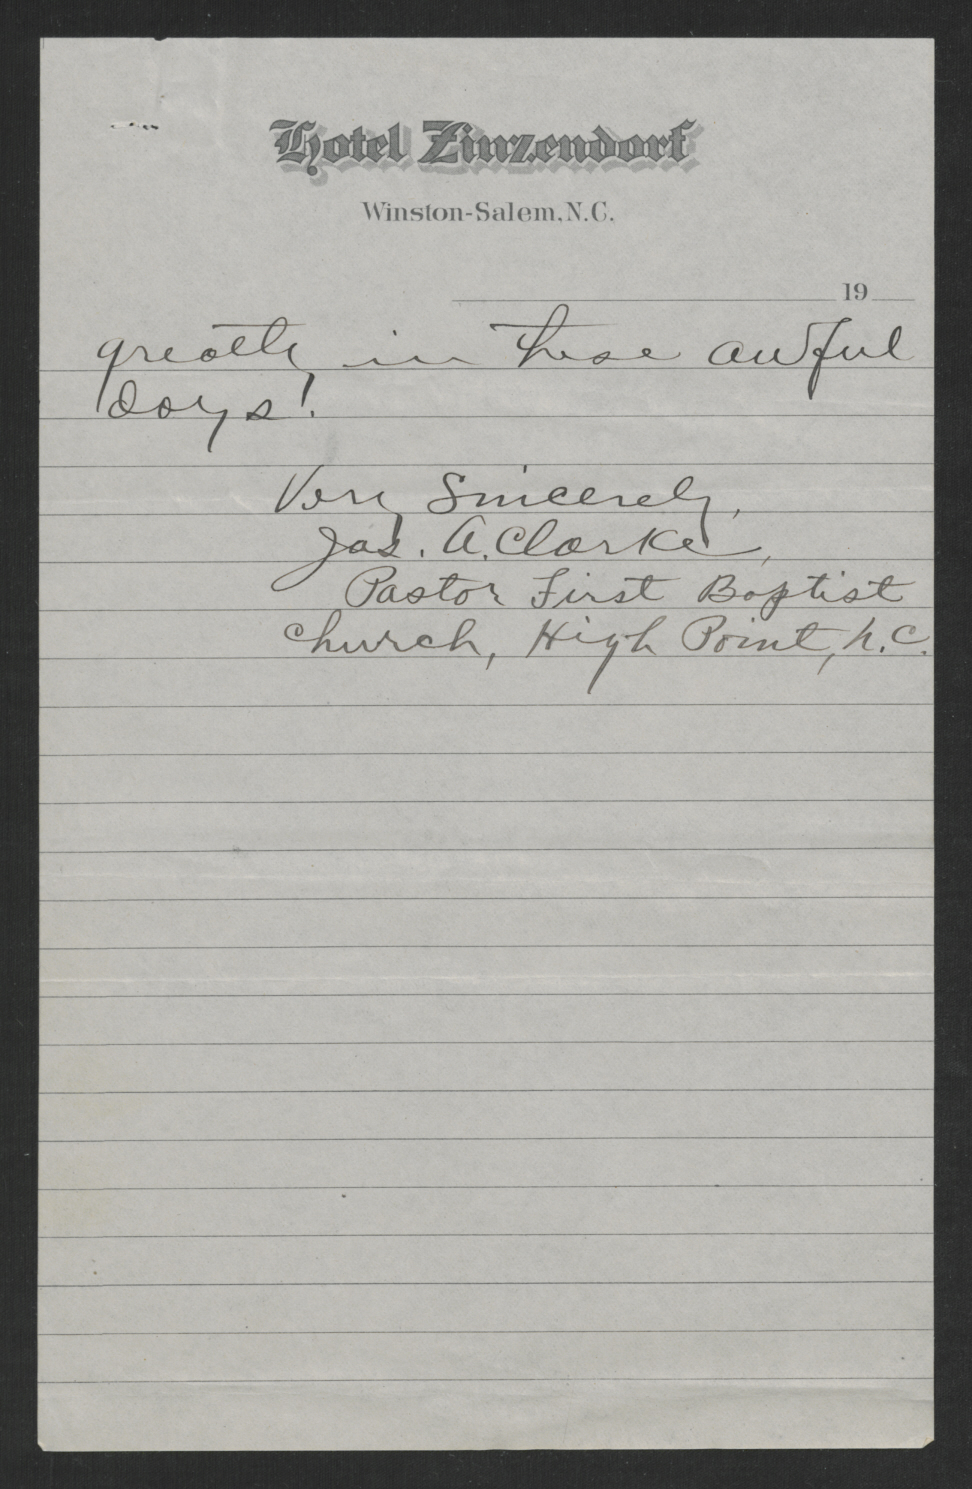 Hotel Zinzendorf
Winston-Salem, N.C.
19
greatly in these awful
days!
Very Sincerely,
Jas. A. Clarke,
Pastor First Baptist
Church, High Point, N.C.